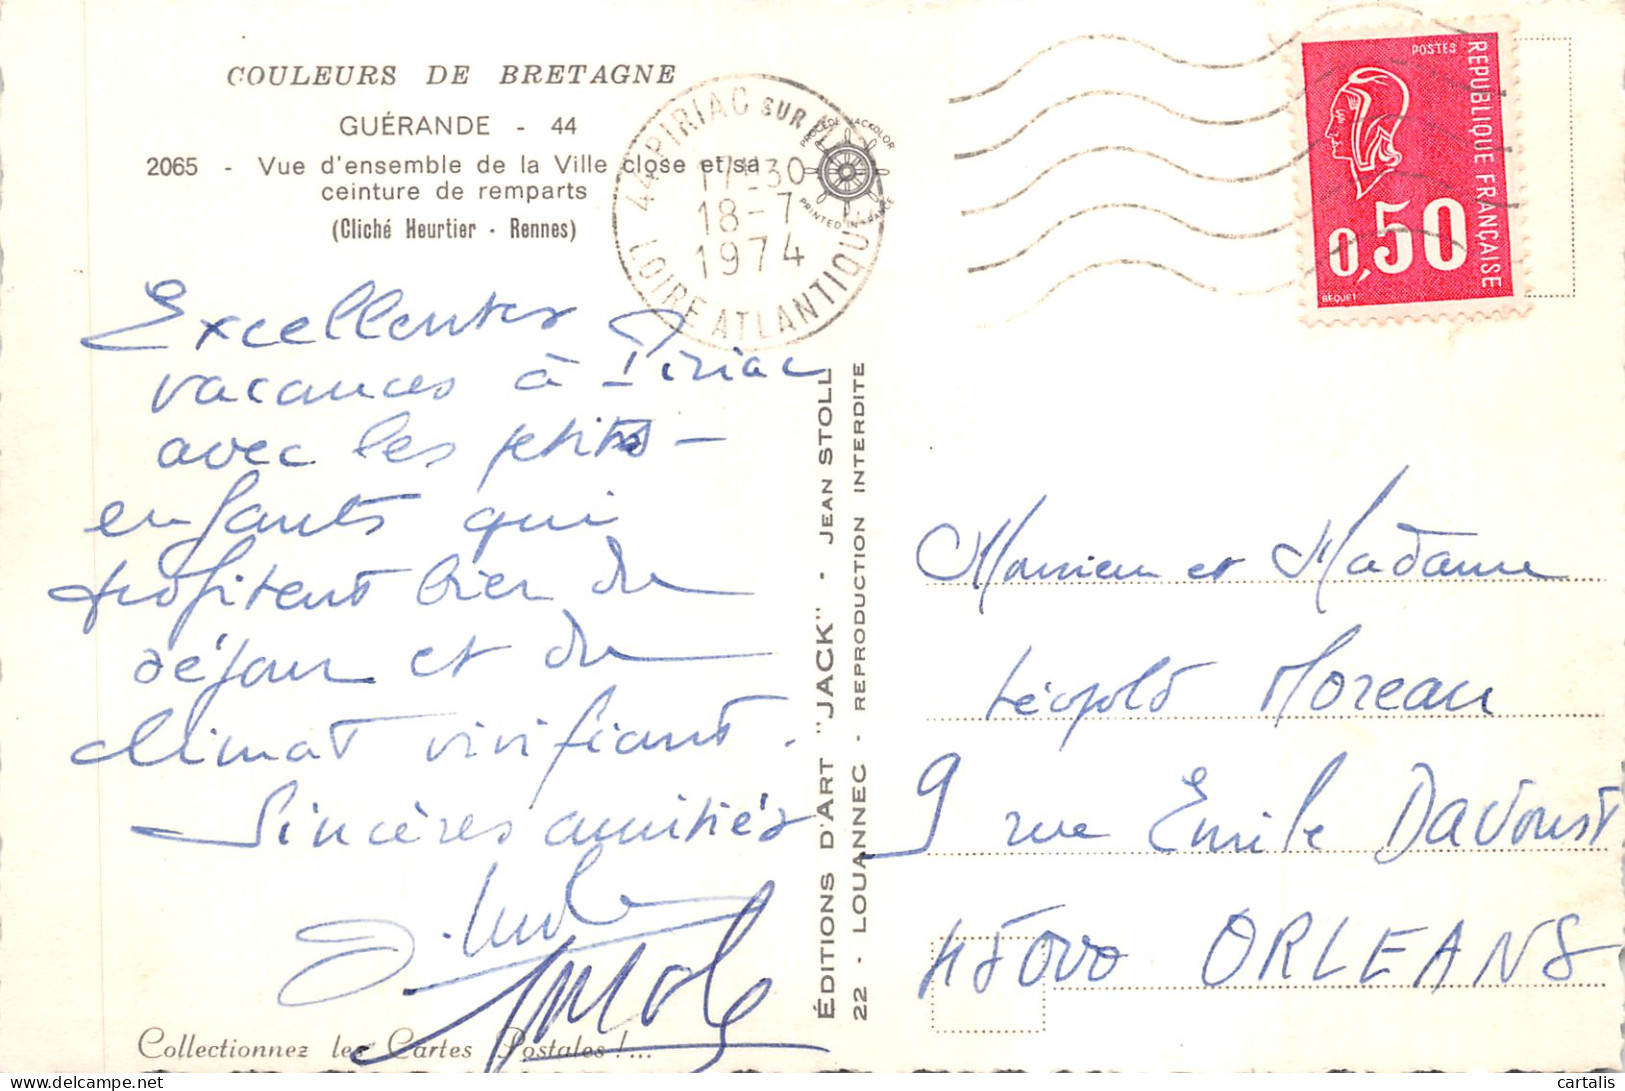 COULEURS DE BRETAGNE
GUÉRANDE - 44
2065 - Vue d'ensemble de la Ville close et sa
ceinture de remparts
(Cliché Heurtier - Rennes)
44 PIRIAC SUR MER
17H30
18-7
1974
LOIRE ATLANTIQUE
PROCÉDÉ JACKOLOR
PRINTED IN FRANCE
POSTES
REPUBLIQUE FRANÇAISE
0,50
BEQUET
Excellentes
vacances à Piriac
avec les petits-
enfants qui
profitent bien du
séjour et du
climat vivifiant.
Sincères amitiés
ÉDITIONS D'ART "JACK" - JEAN STOLL
22 - LOUANNEC - REPRODUCTION INTERDITE
Monsieur et Madame
Léopold Moreau
9 rue Emile Davoust
45000 ORLEANS
Collectionnez les Cartes Postales !...
cartalis delcampe.net